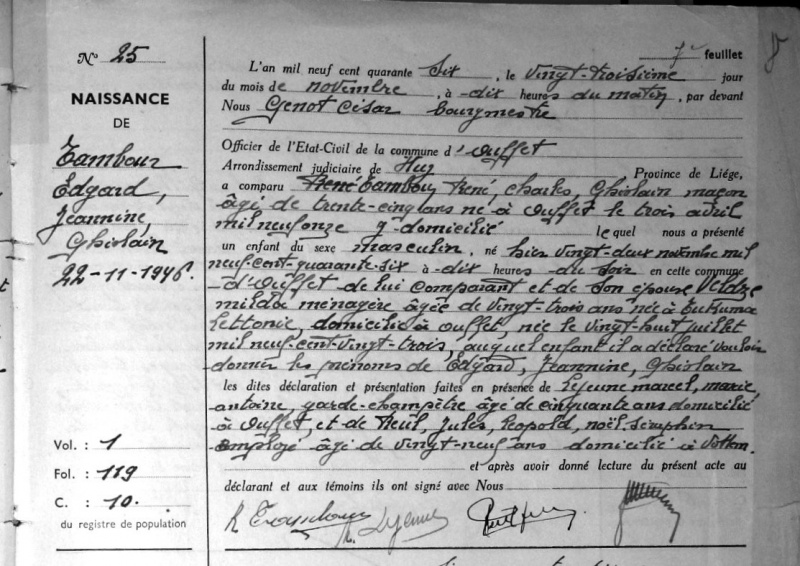 N° 25
NAISSANCE
DE
Tambour
Edgard,
Jeannine,
Ghislain
22-11-1946.
Vol. : 1
Fol. : 119
C. : 10.
du registre de population
7e feuillet
L'an mil neuf cent quarante six, le vingt-troisième jour
du mois de novembre, à -dix heures du matin, par devant
Nous Genot César bourgmestre
Officier de l'Etat-Civil de la commune d'Ouffet
Arrondissement judiciaire de Huy Province de Liége,
a comparu René Tambour, René, Charles, Ghislain maçon
âgé de trente-cinq ans né à Ouffet le trois avril
mil neuf onze y domicilié lequel nous a présenté
un enfant du sexe masculin, né hier vingt-deux novembre mil
neuf-cent-quarante-six à -dix heures du soir en cette commune
d'Ouffet de lui comparant et de son épouse
ménagère âgée de vingt-trois ans née à
Lettonie, domicilié à Ouffet, née le vingt-huit juillet
mil neuf-cent-vingt-trois, auquel enfant il a déclaré vouloir
donner les prénoms de Edgard, Jeannine, Ghislain
les dites déclaration et présentation faites en présence de Lejeune marcel, marie,
antoine, garde-champêtre âgé de cinquante ans domicilié
à Ouffet, et de Jules, Léopold, noël Séraphin
employé âgé de vingt-neuf ans domicilié à
et après avoir donné lecture du présent acte au
déclarant et aux témoins ils ont signé avec Nous
R Tambour Lejeune